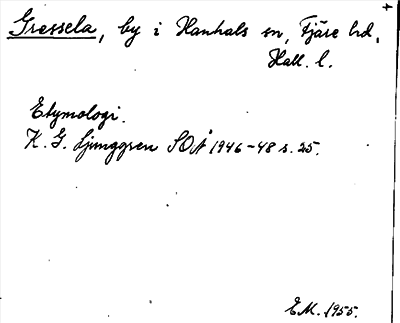 Gressela, by i Hanhals sn, Fjäre hd,
Hall. l.
Etymologi.
K. G. Ljunggren SOÅ 1946-48 s. 25.
E.M. 1955.